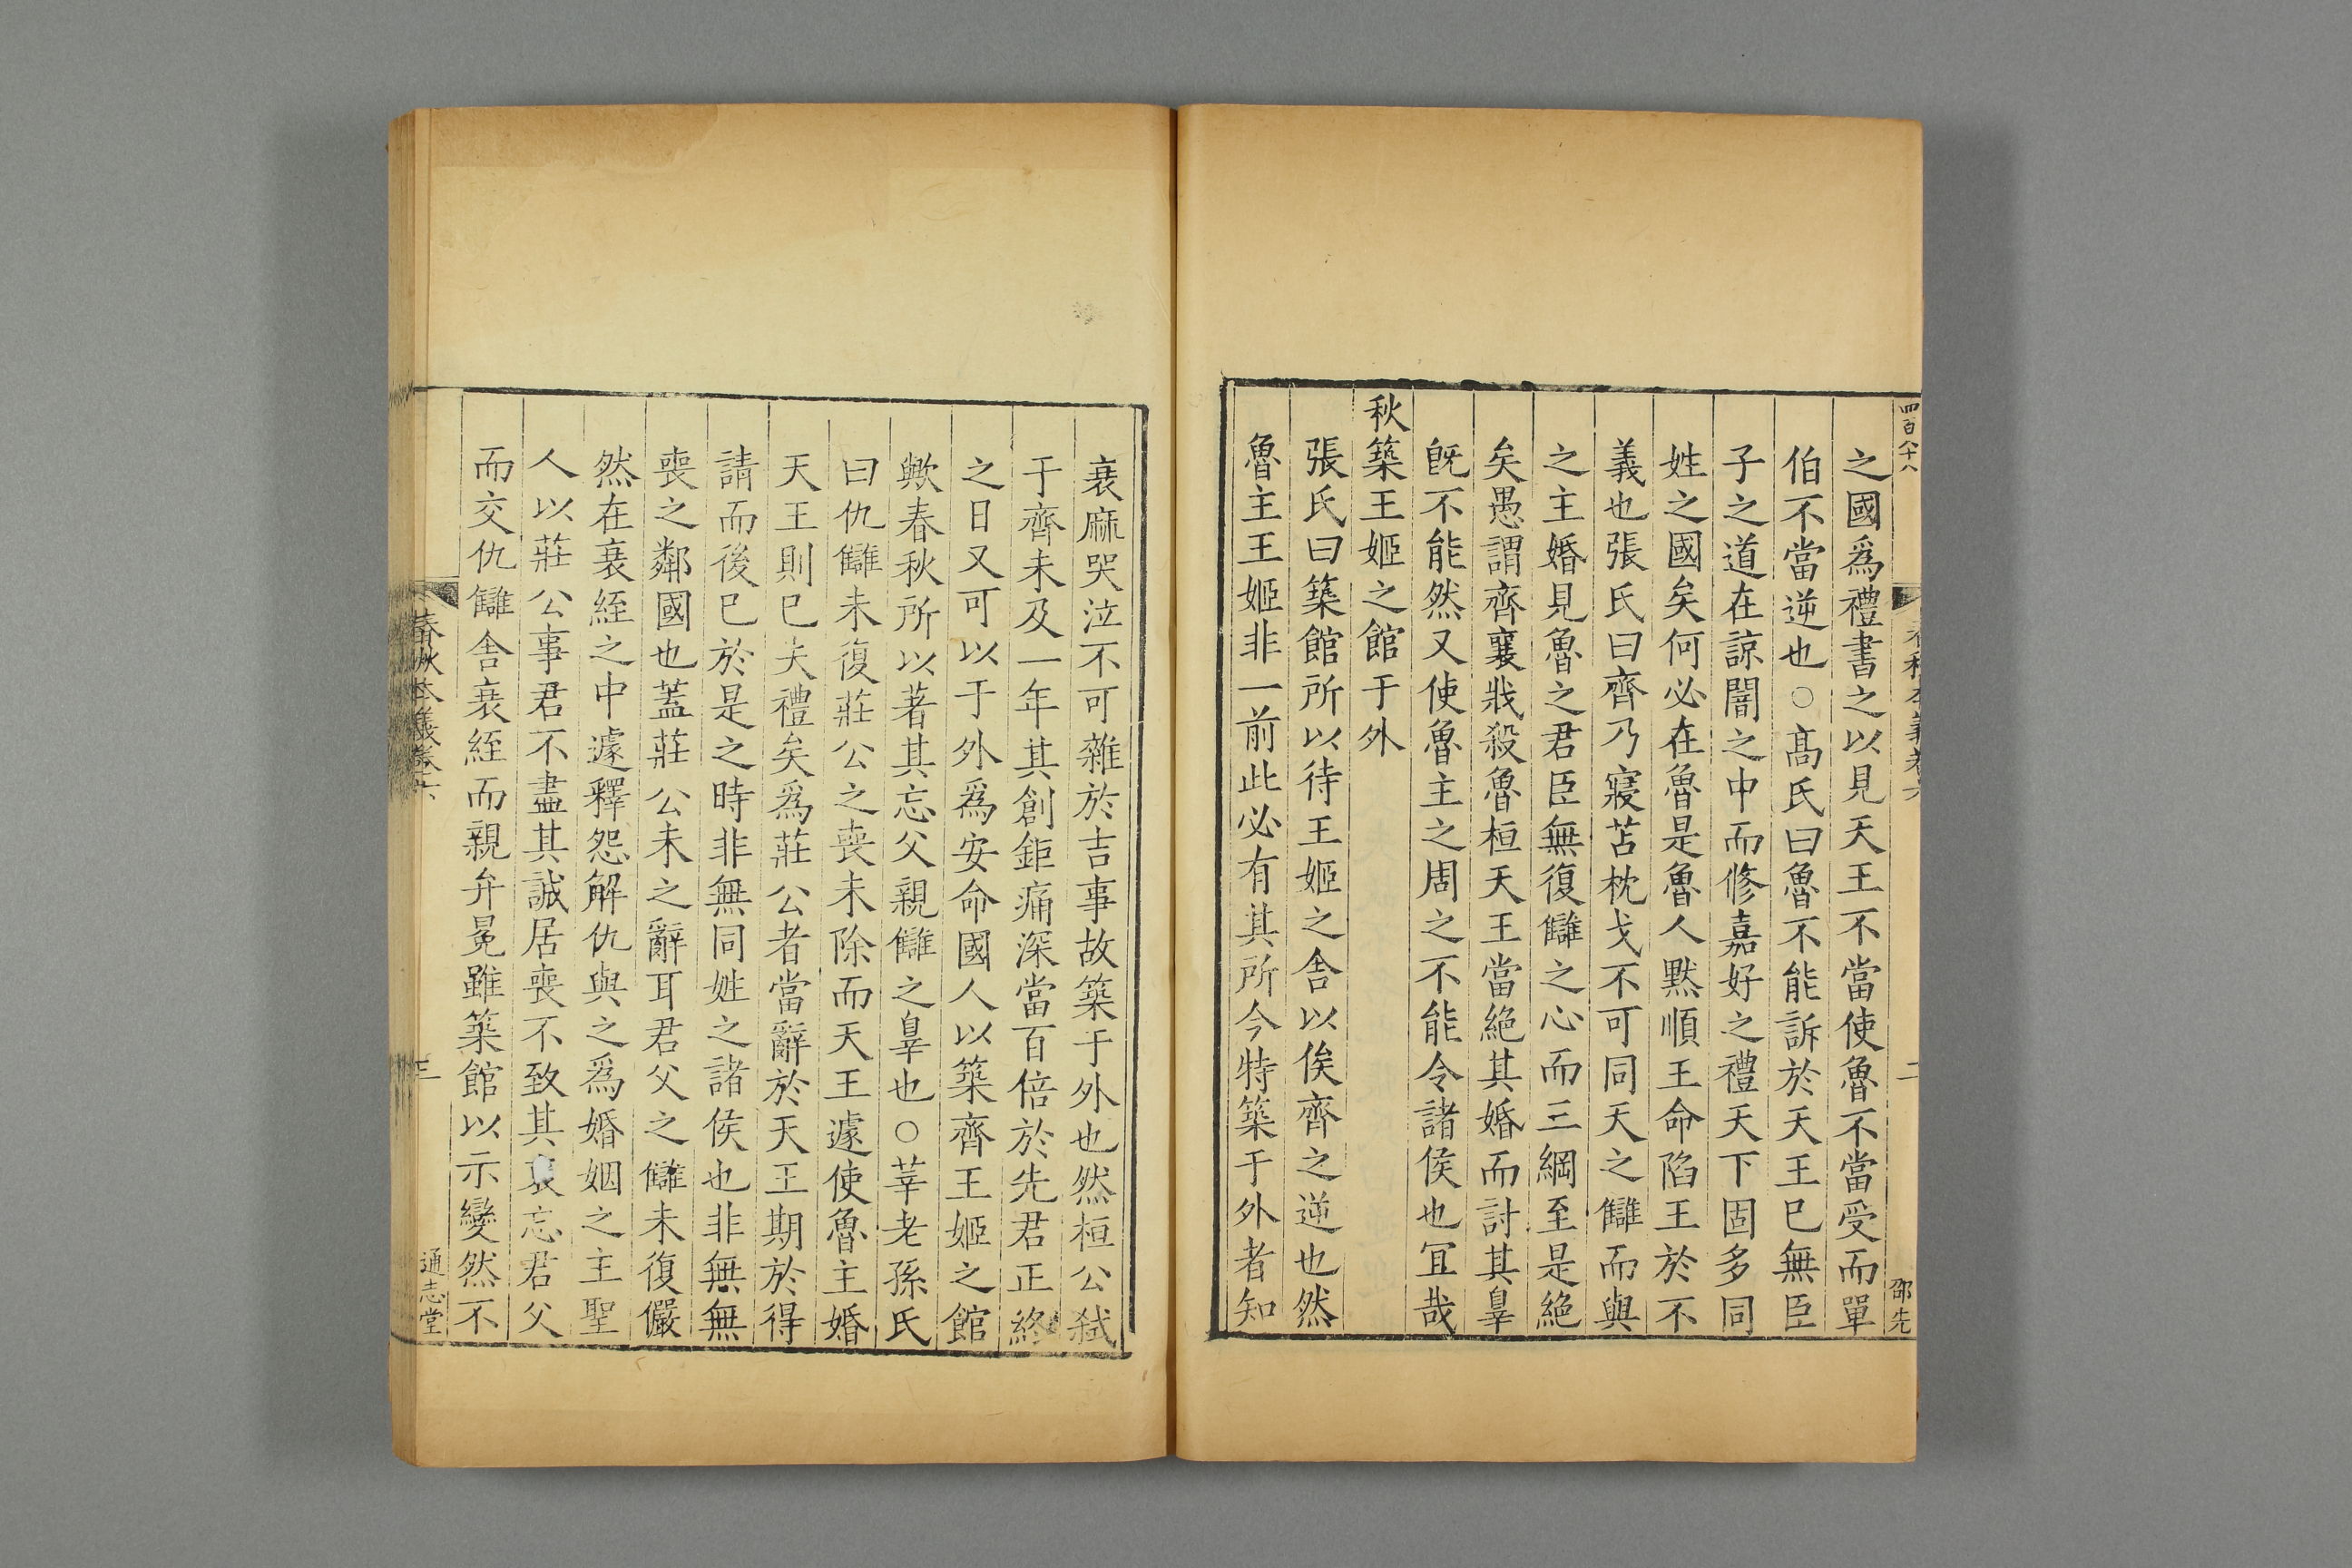 四百八十八
春秋本義卷六
二
邵先
之國爲禮書之以見天王不當使魯不當受而單
伯不當逆也○髙氏曰魯不能訴於天王已無臣
子之道在諒闇之中而修嘉好之禮天下固多同
姓之國矣何必在魯是魯人黙順王命陷王於不
義也張氏曰齊乃寢苫枕戈不可同天之讎而與
之主婚見魯之君臣無復讎之心而三綱至是絶
矣愚謂齊襄戕殺魯桓天王當絶其婚而討其辠
旣不能然又使魯主之周之不能令諸侯也冝哉
秋築王姬之館于外
張氏曰築館所以待王姬之舎以俟齊之逆也然
魯主王姬非一前此必有其所今特築于外者知
衰麻哭泣不可雜於吉事故築于外也然桓公弑
于齊未及一年其創鉅痛深當百倍於先君正終
之日又可以于外爲安命國人以築齊王姬之館
歟春秋所以著其忘父親讎之辠也○莘老孫氏
曰仇讎未復莊公之喪未除而天王遽使魯主婚
天王則已失禮矣爲莊公者當辭於天王期於得
請而後已於是之時非無同姓之諸侯也非無無
喪之鄰國也蓋莊公未之辭耳君父之讎未復儼
然在衰絰之中遽釋怨解仇與之爲婚姻之主聖
人以莊公事君不盡其誠居喪不致其哀忘君父
而交仇讎舎衰絰而親弁冕雖築館以示變然不
春秋本義卷六
三
通志堂